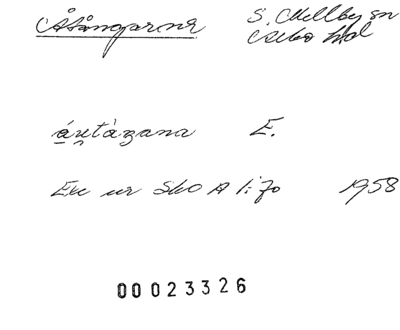 Åsångarne S. Mellby sn
Åsbo hd
áṣtàzana E.
Exc ur SkO A 1:70 1958
00023326